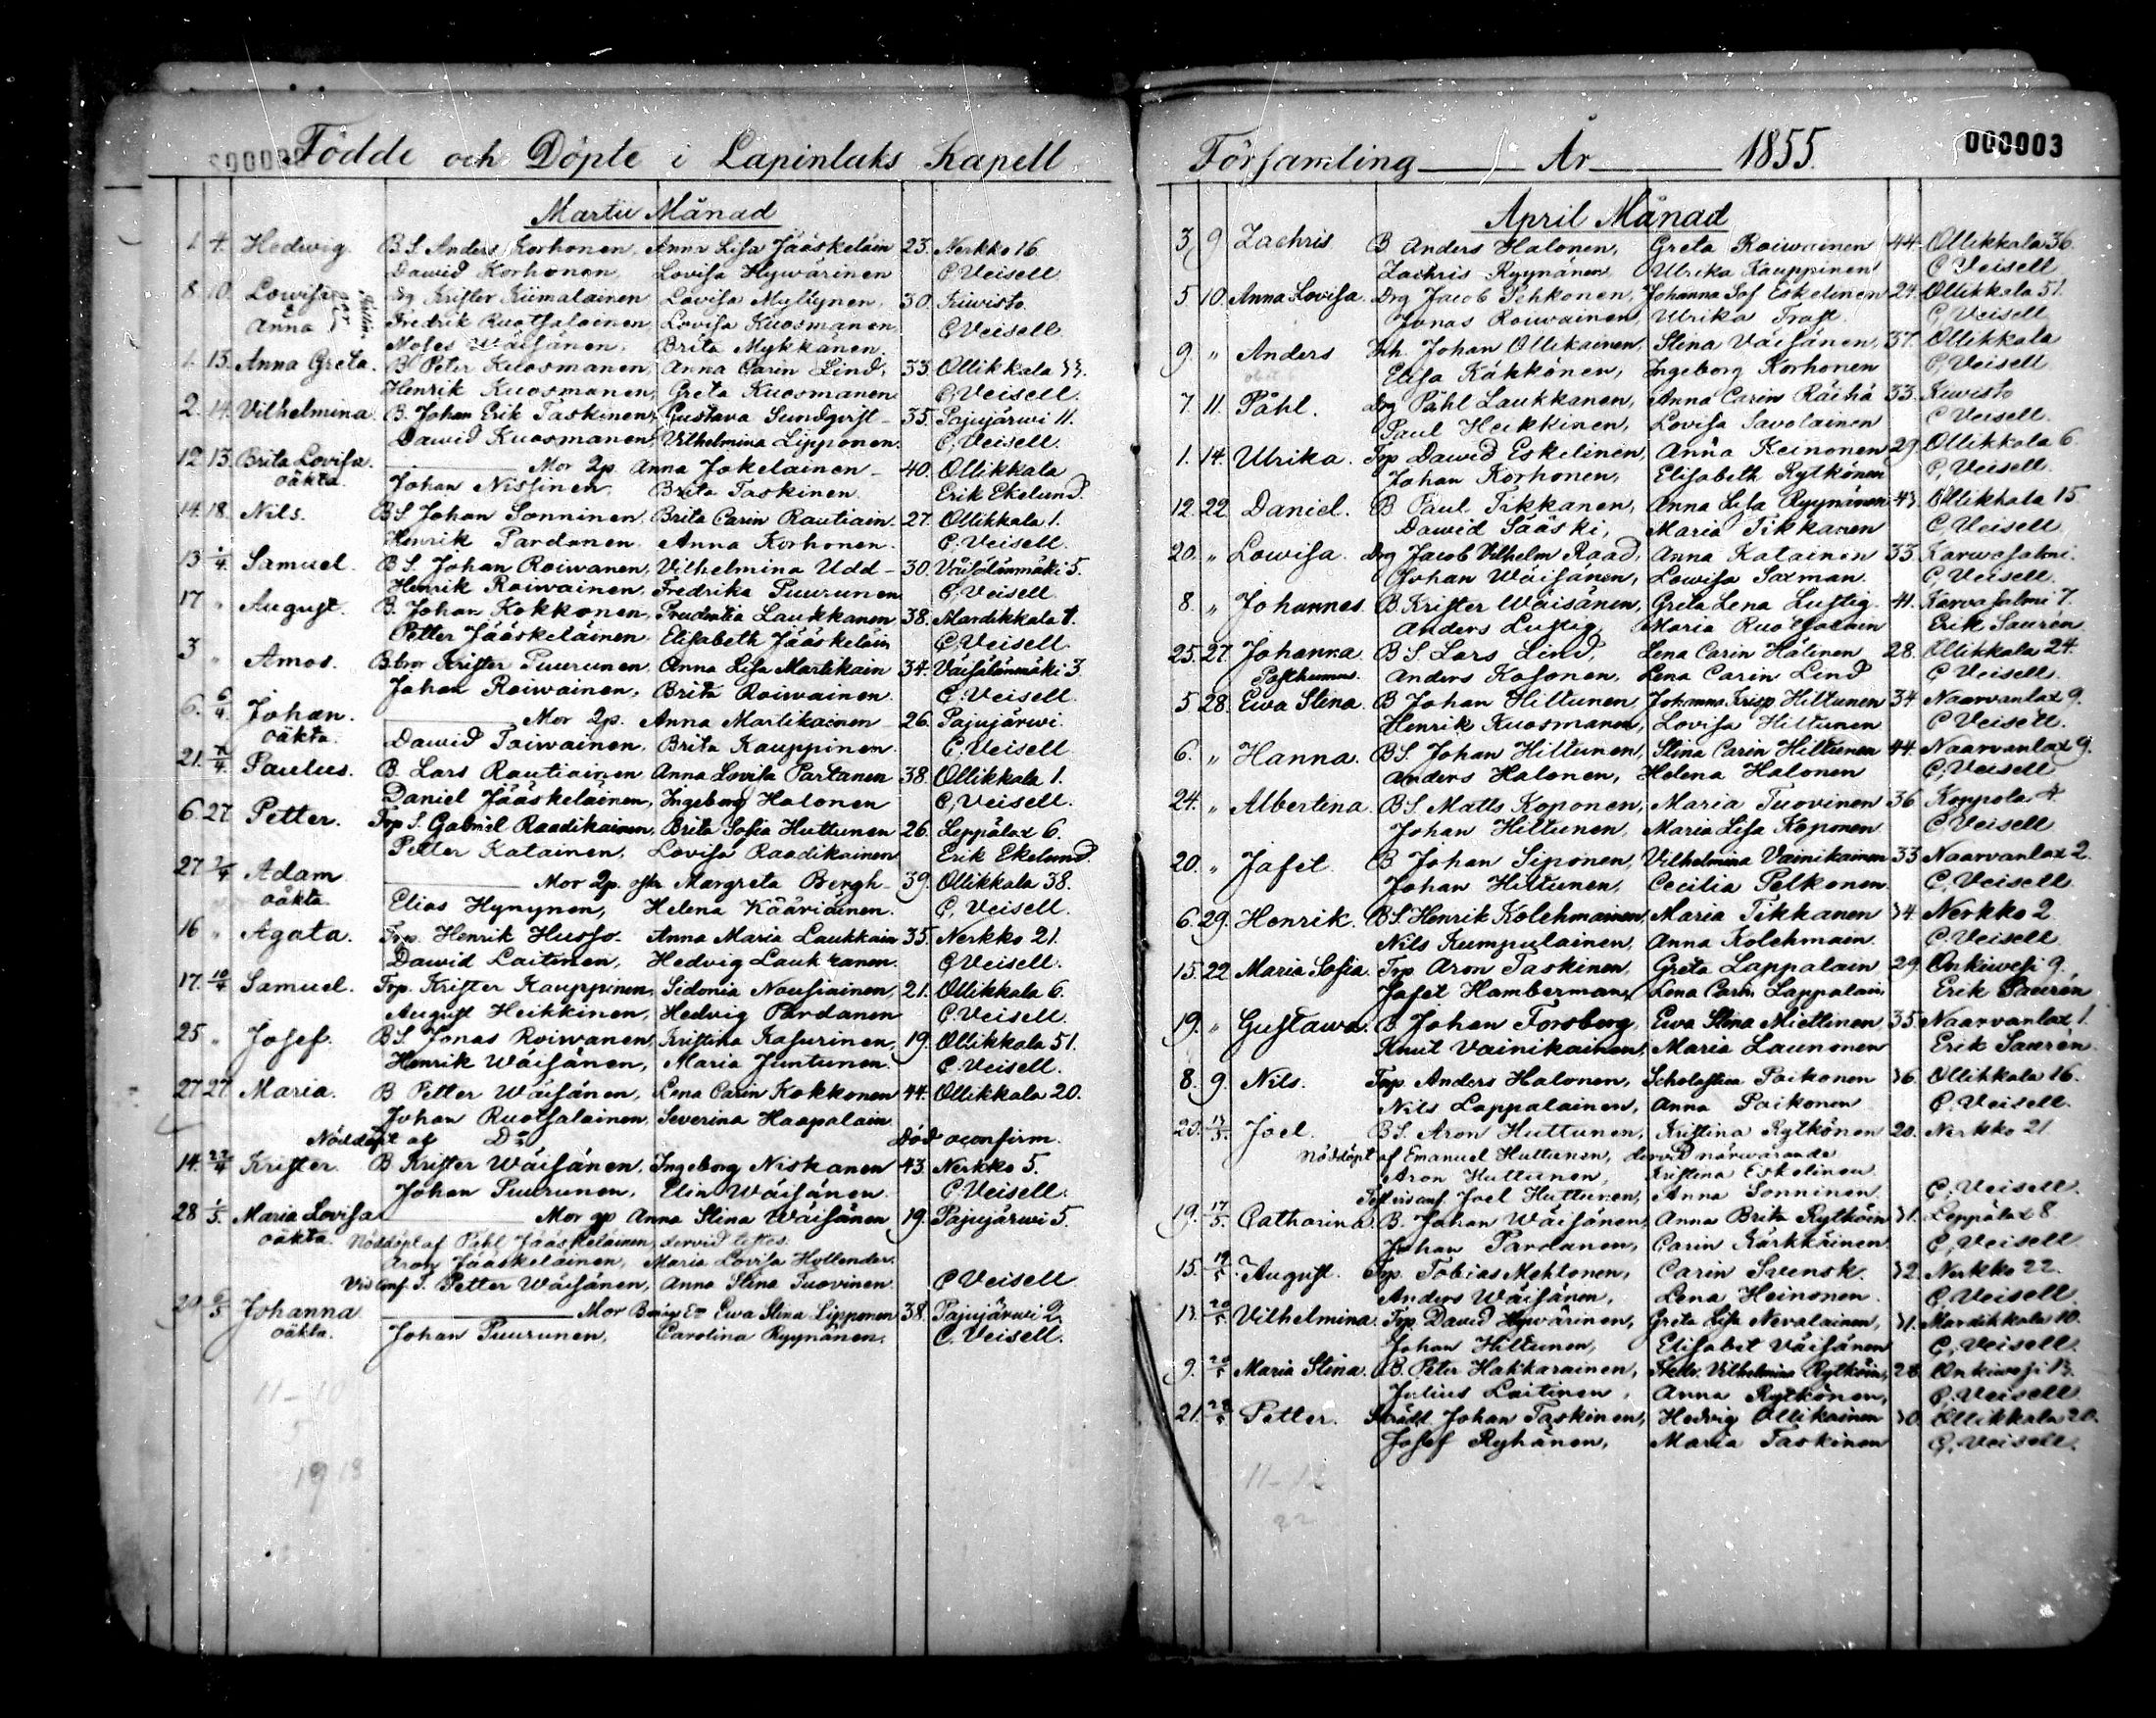 Födde och Döpte i Lapinluks Kapell
Martii Månad
1. 4. Hedwig. B.S. Anders Korhonen, Anna Lisa Jääskeläin 23. Nerkko 16.
Dawid Korhonen, Lovisa Hywärinen C. Veisell
8. 10. Lowisa Drg Krister Kiimalainen Lovisa Myllynen. 30. Kiwisto.
Anna Fredrik Ruotsalainen, Lovisa Kuosmanen, C. Veisell
Moses Wäisänen, Brita Mykkänen
1. 13. Anna Greta. B Peter Kuosmanen, Anna Carin Lind, 33. Ollikkala 33.
Henrik Kuosmanen, Greta Kuosmanen C. Veisell.
2. 14. Vilhelmina. B. Johan Erik Taskinen, Gustava Sundqvist 35. Pajujärwi 11.
Dawid Kuosmanen, Vilhelmina Lipponen. C. Veisell.
12. 13. Brita Lovisa. Mor 2p. Anna Jokelainen 40. Ollikkala
oäkta. Johan Nissinen, Brita Taskinen Erik Ekelund.
14. 18. Nils. BS Johan Sonninen, Brita Carin Rautiain. 27. Ollikkala 1.
Henrik Pardanen. Anna Korhonen. C. Veisell.
13 1/4 Samuel. B.S. Johan Roiwanen, Vilhelmina Udd 30. Väisälänmäki 5.
Henrik Roiwainen, Fredrika Puurunen C. Veisell.
17 " August. B. Johan Kokkonen, Prudentia Laukkanen 38. Mardikkala 7.
Petter Jääskeläinen, Elisabeth Jääskeläin C. Veisell
3 " Amos. Krister Puurunen, Anna Lisa Martikain 34. Väisälänmäki 3
Johan Roiwainen, Brita Roiwainen. C. Veisell
6. 6/4. Johan. Mor 2p. Anna Martikainen 26. Pajujärwi.
oäkta. Dawid Toiwainen, Brita Kauppinen. C. Veisell
21. 7/4. Paulus. B. Lars Rautiainen Anna Lovisa Partanen 38. Ollikkala 1.
Daniel Jääskeläinen, Ingeborg Halonen C. Veisell.
6. 27 Petter. Trp S. Gabriel Raadikainen, Brita Sofia Huttunen 26. Leppälax 6.
Petter Katainen, Lovisa Raadikainen Erik Ekelund.
27 7/4 Adam. Mor 2p. Margreta Bergh 39. Ollikkala 38.
oäkta. Elias Hynynen, Helena Kääriäinen. C. Veisell.
16 " Agata. Trp. Henrik Husso. Anna Maria Laukkain 35. Nerkko 21.
Dawid Laitinen, Hedvig Laukkanen. C Veisell.
17. 10/4 Samuel. Trp. Krister Kauppinen, Sidonia Nousiainen, 21. Ollikkala 6.
August Heikkinen, Hedvig Pardanen C. Veisell.
25 " Josef. B.S. Jonas Roiwanen, Kristina Kasurinen, 19. Ollikkala 51.
Henrik Wäisänen, Maria Juntunen. C. Veisell.
27 27. Maria. B Petter Wäisänen, Lena Carin Kokkonen 44. Ollikkala 20.
Johan Ruotsalainen, Severina Haapalain
Nöddöpt af Do Död oconfirm.
14. 22/4 Krister. B Krister Wäisänen, Ingeborg Niskanen 43. Nerkko 5.
Johan Puurunen, Elin Wäisänen. C. Veisell.
28 1/5. Maria Lovisa Mor 2p Anna Stina Wäisänen 19. Pajujärwi 5.
oäkta. Nöddöpt af Påhl Jääskeläinen, dervid testes
Aron Jääskeläinen, Maria Lovisa Hollender.
Vid conf. T. Petter Wäisänen, Anna Stina Tuovinen. C Veisell
29 6/5 Johanna Mor Ewa Stina Lipponen 38. Pajujärwi 2.
oäkta. Johan Puurunen, Carolina Ryynänen, C. Veisell.
11-10
5
19 18
Församling År 1855.
000003
April Månad
3. 9 Zachris B Anders Halonen, Greta Roiwainen 44. Ollikkala 36.
Zachris Ryynänen, Ulrika Kauppinen C Veisell
5 10. Anna Lovisa. Drg Jacob Pehkonen, Johanna Sof Eskelinen 24. Ollikkala 51.
Jonas Roiwainen, Ulrika Trast. C. Veisell
9. " Anders Inh. Johan Ollikainen, Stina Väisänen, 37. Ollikkala
Elisa Käkkönen, Ingeborg Korhonen C. Veisell
7. 11. Påhl. Drg Påhl Laukkanen, Anna Carin Räihä 33. Kiwisto
Paul Heikkinen, Lovisa Savolainen C Veisell.
1. 14. Ulrika. Trp Dawid Eskelinen, Anna Keinonen 29. Ollikkala 6.
Johan Korhonen, Elisabeth Rytkönen C. Veisell.
12. 22. Daniel. B Paul Tikkanen, Anna Lisa Ryynänen 43. Ollikkala 15.
Dawid Sääski, Maria Tikkanen C Veisell.
20. " Lowisa. Drg Jacob Vilhelm Raad, Anna Katainen 33. Karwasalmi.
Johan Wäisänen, Lowisa Saxman. C. Veisell.
8. " Johannes. B Krister Wäisänen, Greta Lena Lustig. 41. Karvasalmi 7.
Anders Lustig, Maria Ruotsalain Erik Sauren
25. 27. Johanna BS. Lars Lind, Lena Carin Hälinen 28. Ollikkala 24.
Posthumus. Anders Kosonen, Lena Carin Lind C Veisell.
5 28. Ewa Stina. B Johan Hiltunen, Johanna Hiltunen 34 Naarvanlax 9.
Henrik Kuosmanen, Lovisa Hiltunen C Veisell.
6. " Hanna. B.S. Johan Hiltunen, Stina Carin Hiltunen 44. Naarvanlax 9.
Anders Halonen, Helena Halonen C. Veisell
24. " Albertina. B.S. Matts Koponen, Maria Tuovinen 36. Koppola 4.
Johan Hiltunen, Maria Lisa Koponen C. Veisell
20. " Jafet B Johan Siponen, Vilhelmina Vainikainen 33 Naarvanlax 2.
Johan Hiltunen, Cecilia Pelkonen. C. Veisell.
6. 29. Henrik. B.S. Henrik Kolehmainen, Maria Tikkanen 34. Nerkko 2.
Nils Kumpulainen, Anna Kolehmain. C. Veisell.
15. 22 Maria Sofia. Trp Aron Taskinen, Greta Lappalain 29. Onkiwesi 9.
Jafet Hamberman, Lena Carin Lappalain Erik Sauren
19. " Gustawa. B Johan Forsberg Ewa Stina Miettinen 35. Naarvanlax 1.
Knut Vainikainen, Maria Launonen Erik Sauren.
8. 9. Nils. Trp. Anders Halonen, Scholastica Poikonen 36. Ollikkala 16.
Nils Lappalainen, Anna Poikonen C. Veisell.
20. 13/5. Joel. B.S. Aron Huttunen, Kristina Rytkönen 20. Nerkko 21
Nöddöpt af Emanuel Huttunen, dervid närwarande
Aron Huttunen, Kristina Eskelinen
Joel Huttunen, Anna Sonninen. C. Veisell.
19. 17/5. Catharina B. Johan Wäisänen, Anna Brita Rytköin 31. Leppälax 8.
Johan Pardanen, Carin Kärkkäinen C. Veisell
15. 19/5 August. Trp. Tobias Mehtonen, Carin Svensk. 32. Nerkko 22.
Anders Wäisänen, Lena Heinonen. C. Veisell.
13. 20/5 Vilhelmina. Trp. David Hywärinen, Greta Lisa Nevalainen, 31. Mardikkala 10.
Johan Hiltunen, Elisabet Väisänen C. Veisell.
9. 20/5 Maria Stina. B. Peter Hakkarainen, Hedv. Vilhelmina Rytköin, 28. Onkiwesi 13.
Julius Laitinen, Anna Rytkönen, C. Veisell.
21. 28/5 Petter. Johan Taskinen, Hedvig Ollikainen 30. Ollikkala 20.
Josef Ryhänen, Maria Taskinen C. Veisell.
11-12
22